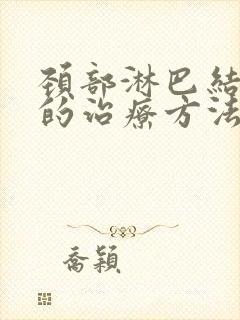 頚部淋巴結
的治療方法
喬穎